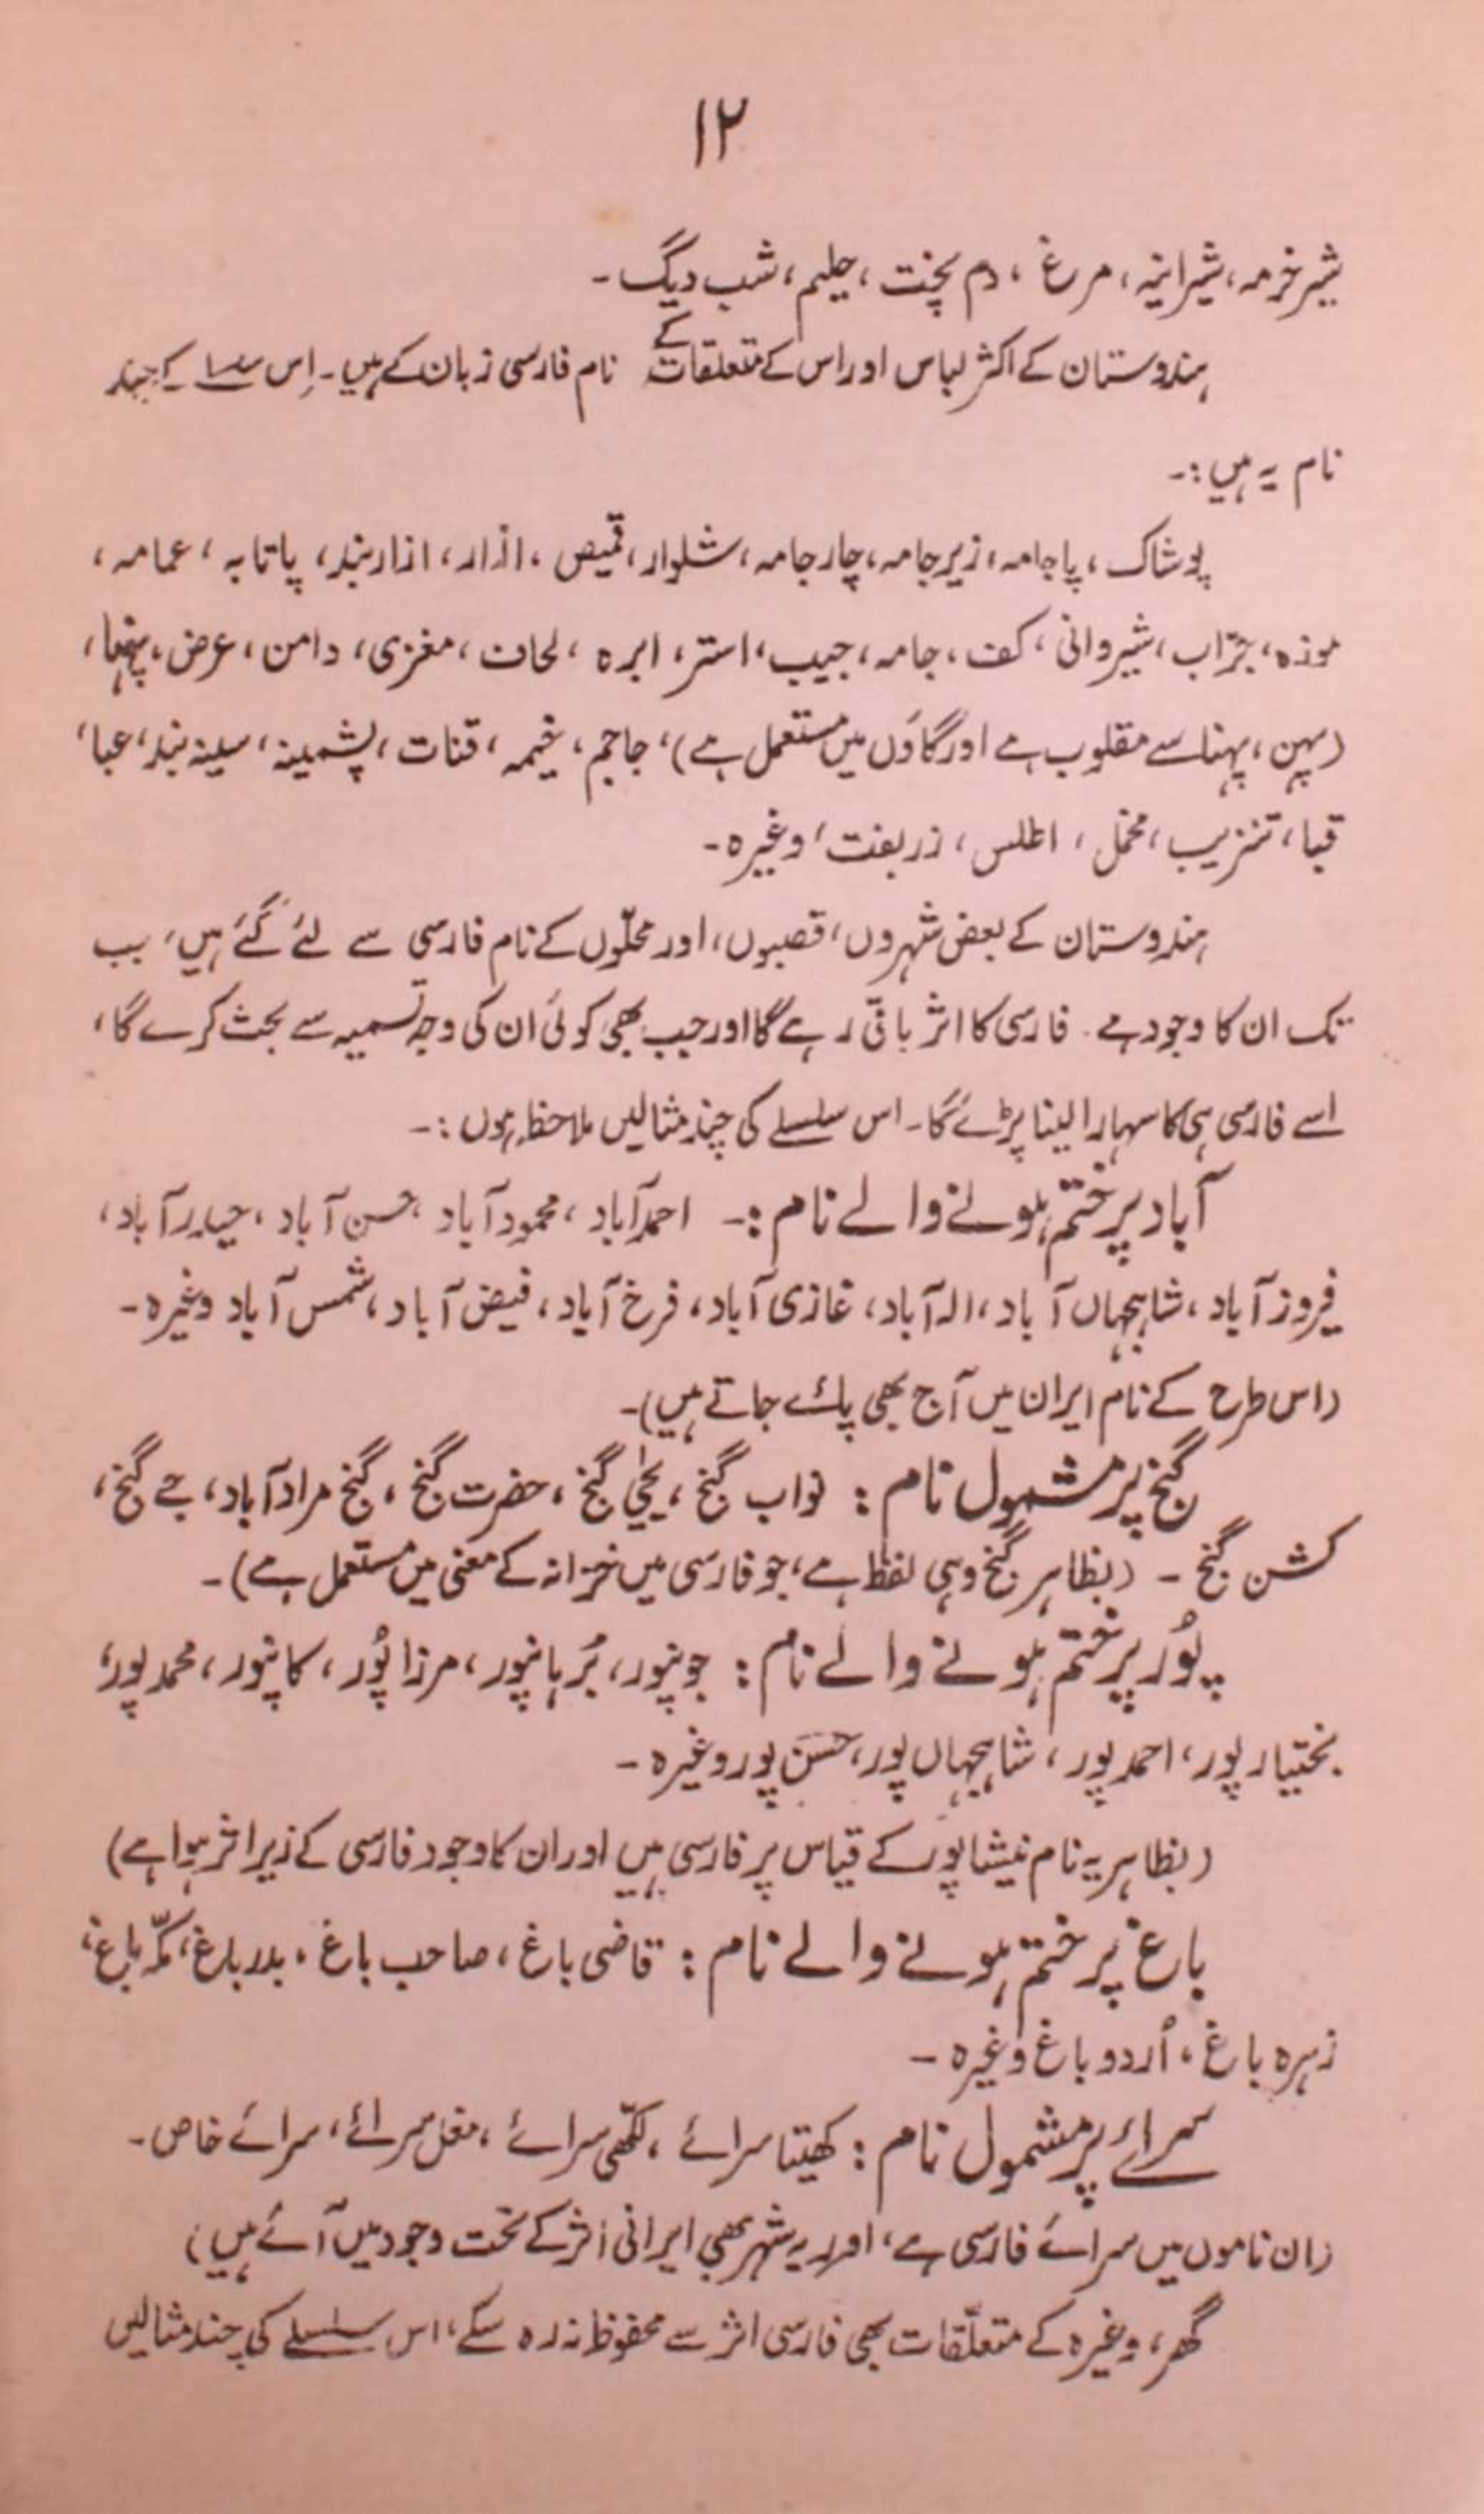 ۱۲
شیر خرمہ، شیرانیہ، مرغ، دم پخت، حلیم، شب دیگ۔
ہندوستان کے اکثر لباس اور اس کے متعلقات کے نام فارسی زبان کے ہیں۔ اِس سلسلے کے چند
نام یہ ہیں:۔
پوشاک، پاجامہ، زیر جامہ، چار جامہ، شلوار، قمیص، ازار، ازار بند، پاتابہ، عمامہ،
موزہ، جرّاب، شیروانی، کف، جامہ، جیب، استر، ابرہ، لحاف، مغزی، دامن، عرض، پنھا،
(پہن، پہنا سے مقلوب ہے اور گاؤں میں مستعمل ہے)، جاجم، خیمہ، قنات، پشمینہ، سینہ بند، عبا،
قبا، تنزیب، مخمل، اطلس، زربفت، وغیرہ۔
ہندوستان کے بعض شہروں، قصبوں، اور محلّوں کے نام فارسی سے لئے گئے ہیں، جب
تک ان کا وجود ہے۔ فارسی کا اثر باقی رہے گا اور جب بھی کوئی ان کی وجہ تسمیہ سے بحث کرے گا،
اسے فارسی ہی کا سہارا لینا پڑے گا۔ اس سلسلے کی چند مثالیں ملاحظہ ہوں:۔
آباد پر ختم ہونے والے نام:۔ احمدآباد، محمودآباد، حسن آباد، حیدرآباد،
فیروز آباد، شاہجہاں آباد، الہ آباد، غازی آباد، فرخ آباد، فیض آباد، شمس آباد وغیرہ۔
(اس طرح کے نام ایران میں آج بھی پائے جاتے ہیں)۔
گنج پر مشمول نام: نواب گنج، یحیٰی گنج، حضرت گنج، گنج مرادآباد، جے گنج،
کشن گنج۔ (بظاہر گنج وہی لفظ ہے، جو فارسی میں خزانہ کے معنی میں مستعمل ہے)۔
پُور پر ختم ہونے والے نام: جونپور، بُرہانپور، مرزا پُور، کانپور، محمد پور،
بختیار پور، احمد پور، شاہجہاں پور، حسن پور وغیرہ۔
(بظاہر یہ نام نیشاپور کے قیاس پر فارسی ہیں اور ان کا وجود فارسی کے زیر اثر ہوا ہے)
باغ پر ختم ہونے والے نام: قاضی باغ، صاحب باغ، بدر باغ، مکّہ باغ،
زہرہ باغ، اُردو باغ وغیرہ۔
سرائے پر مشمول نام: کھیتا سرائے، لکھّی سرائے، مغل سرائے، سرائے خاص۔
(ان ناموں میں سرائے فارسی ہے، اور یہ شہر بھی ایرانی اثر کے تحت وجود میں آئے ہیں)
گھر، وغیرہ کے متعلّقات بھی فارسی اثر سے محفوظ نہ رہ سکے، اس سلسلے کی چند مثالیں